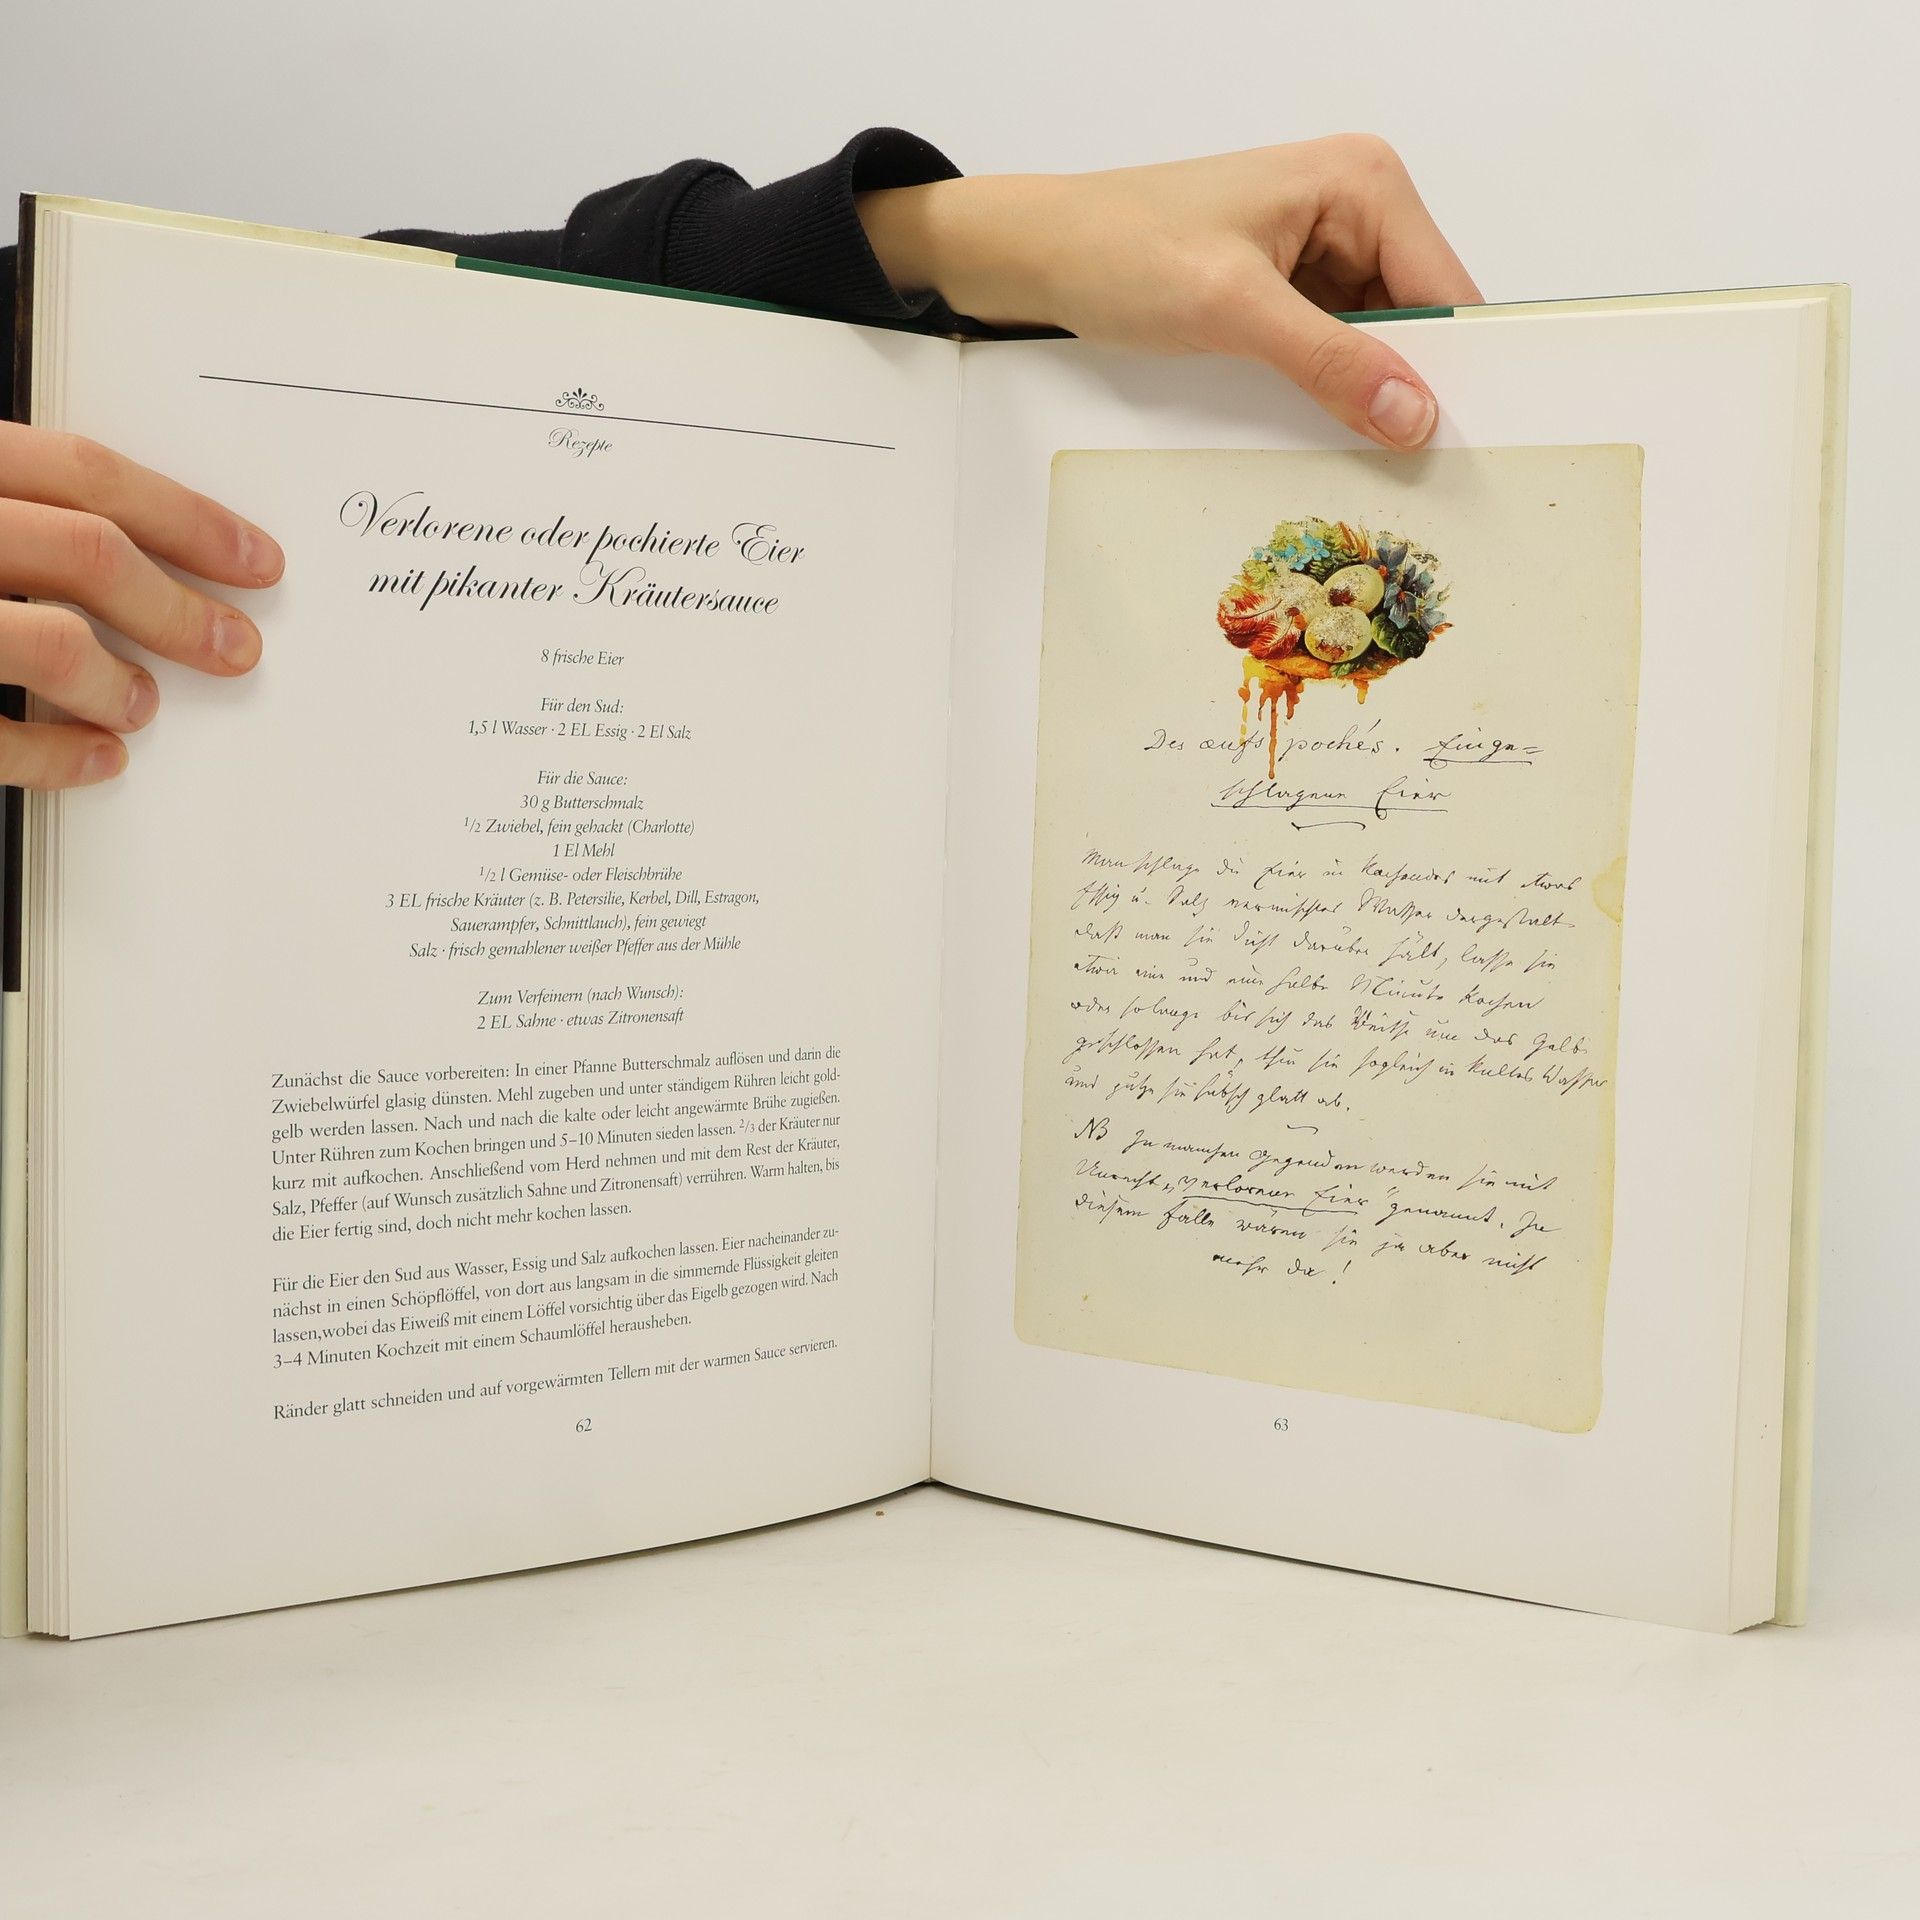 Rezepte
Verlorene oder pochierte Eier
mit pikanter Kräutersauce
8 frische Eier
Für den Sud:
1,5 l Wasser · 2 EL Essig · 2 El Salz
Für die Sauce:
30 g Butterschmalz
1/2 Zwiebel, fein gehackt (Charlotte)
1 El Mehl
1/2 l Gemüse- oder Fleischbrühe
3 EL frische Kräuter (z. B. Petersilie, Kerbel, Dill, Estragon,
Sauerampfer, Schnittlauch), fein gewiegt
Salz · frisch gemahlener weißer Pfeffer aus der Mühle
Zum Verfeinern (nach Wunsch):
2 EL Sahne · etwas Zitronensaft
Zunächst die Sauce vorbereiten: In einer Pfanne Butterschmalz auflösen und darin die
Zwiebelwürfel glasig dünsten. Mehl zugeben und unter ständigem Rühren leicht gold-
gelb werden lassen. Nach und nach die kalte oder leicht angewärmte Brühe zugießen.
Unter Rühren zum Kochen bringen und 5–10 Minuten sieden lassen. 2/3 der Kräuter nur
kurz mit aufkochen. Anschließend vom Herd nehmen und mit dem Rest der Kräuter,
Salz, Pfeffer (auf Wunsch zusätzlich Sahne und Zitronensaft) verrühren. Warm halten, bis
die Eier fertig sind, doch nicht mehr kochen lassen.
Für die Eier den Sud aus Wasser, Essig und Salz aufkochen lassen. Eier nacheinander zu-
nächst in einen Schöpflöffel, von dort aus langsam in die simmernde Flüssigkeit gleiten
lassen,wobei das Eiweiß mit einem Löffel vorsichtig über das Eigelb gezogen wird. Nach
3–4 Minuten Kochzeit mit einem Schaumlöffel herausheben.
Ränder glatt schneiden und auf vorgewärmten Tellern mit der warmen Sauce servieren.
62
Des œufs pochés. Einge=
schlagene Eier
Man schlage die Eier in kochendes mit etwas
Essig u. Salz vermischtes Wasser dergestalt
daß man sie dicht darüber hält, lasse sie
etwa eine und eine halbe Minute kochen
oder solange bis sich das Weiße um das Gelb
geschlossen hat, thue sie sogleich in kaltes Wasser
und putze sie hübsch glatt ab.
NB In manchen Gegenden werden sie mit
Unrecht „Verlorene Eier" genannt. In
diesem Falle wären sie ja aber nicht
mehr da!
63